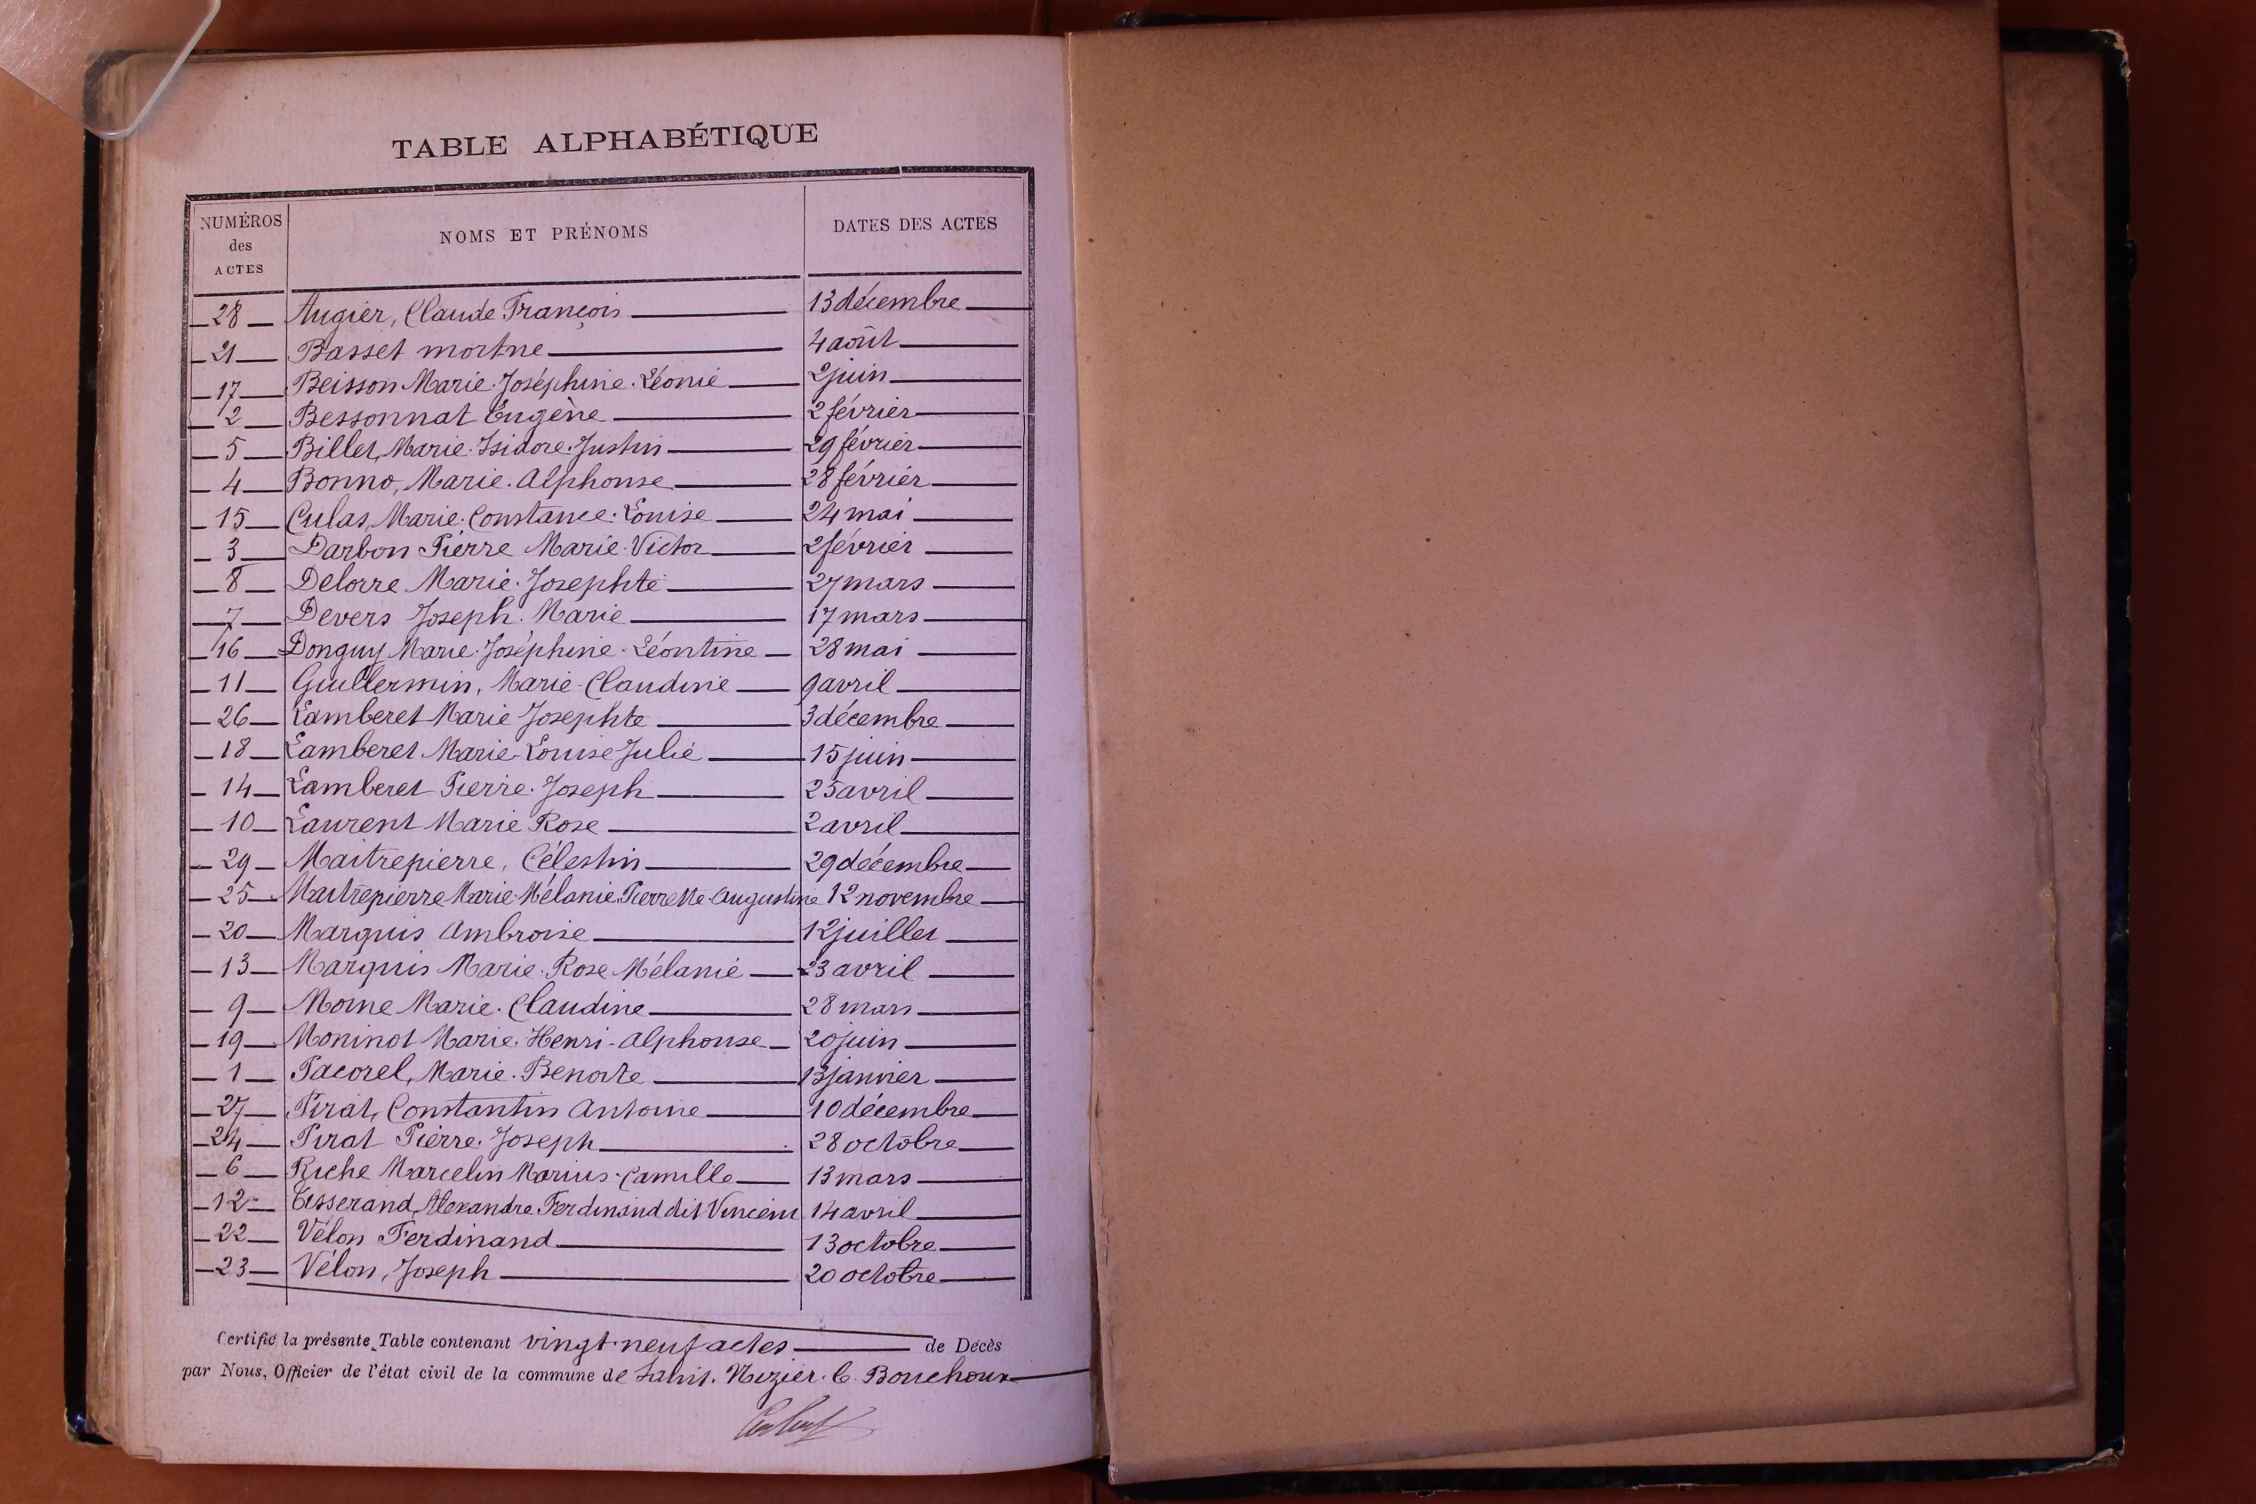 TABLE ALPHABÉTIQUE
NUMÉROS des ACTES NOMS ET PRÉNOMS DATES DES ACTES
28 Augier, Claude François 13 décembre
21 Basset mort né 4 août
17 Beisson Marie-Joséphine-Léonie 2 juin
2 Bessonnat Eugène 2 février
5 Billet, Marie-Isidore-Justin 29 février
4 Bonno, Marie-Alphonse 28 février
15 Culas, Marie-Constance-Louise 24 mai
3 Darbon Pierre Marie-Victor 2 février
8 Delorre Marie-Josephte 27 mars
7 Devers Joseph-Marie 17 mars
16 Donguy Marie-Joséphine-Léontine 28 mai
11 Guillermin, Marie-Claudine 9 avril
26 Lamberet Marie Josephte 3 décembre
18 Lamberet Marie-Louise Julie 15 juin
14 Lamberet Pierre-Joseph 25 avril
10 Laurent Marie Rose 2 avril
29 Maitrepierre, Célestin 29 décembre
25 Maitrepierre Marie-Mélanie-Pierrette-Augustine 12 novembre
20 Marquis Ambroise 12 juillet
13 Marquis Marie-Rose Mélanie 23 avril
9 Moine Marie-Claudine 28 mars
19 Moninot Marie-Henri-Alphonse 20 juin
1 Pacorel, Marie-Benoite 13 janvier
27 Pirat, Constantin Antoine 10 décembre
24 Pirat Pierre-Joseph 28 octobre
6 Riche Marcelin Marius-Camille 13 mars
12 Tisserand, Alexandre Ferdinand dit Vincent 14 avril
22 Vélon Ferdinand 13 octobre
23 Vélon, Joseph 20 octobre
Certifié la présente Table contenant vingt-neuf actes de Décès
par Nous, Officier de l'état civil de la commune de Saint-Nizier-l. Bouchoux